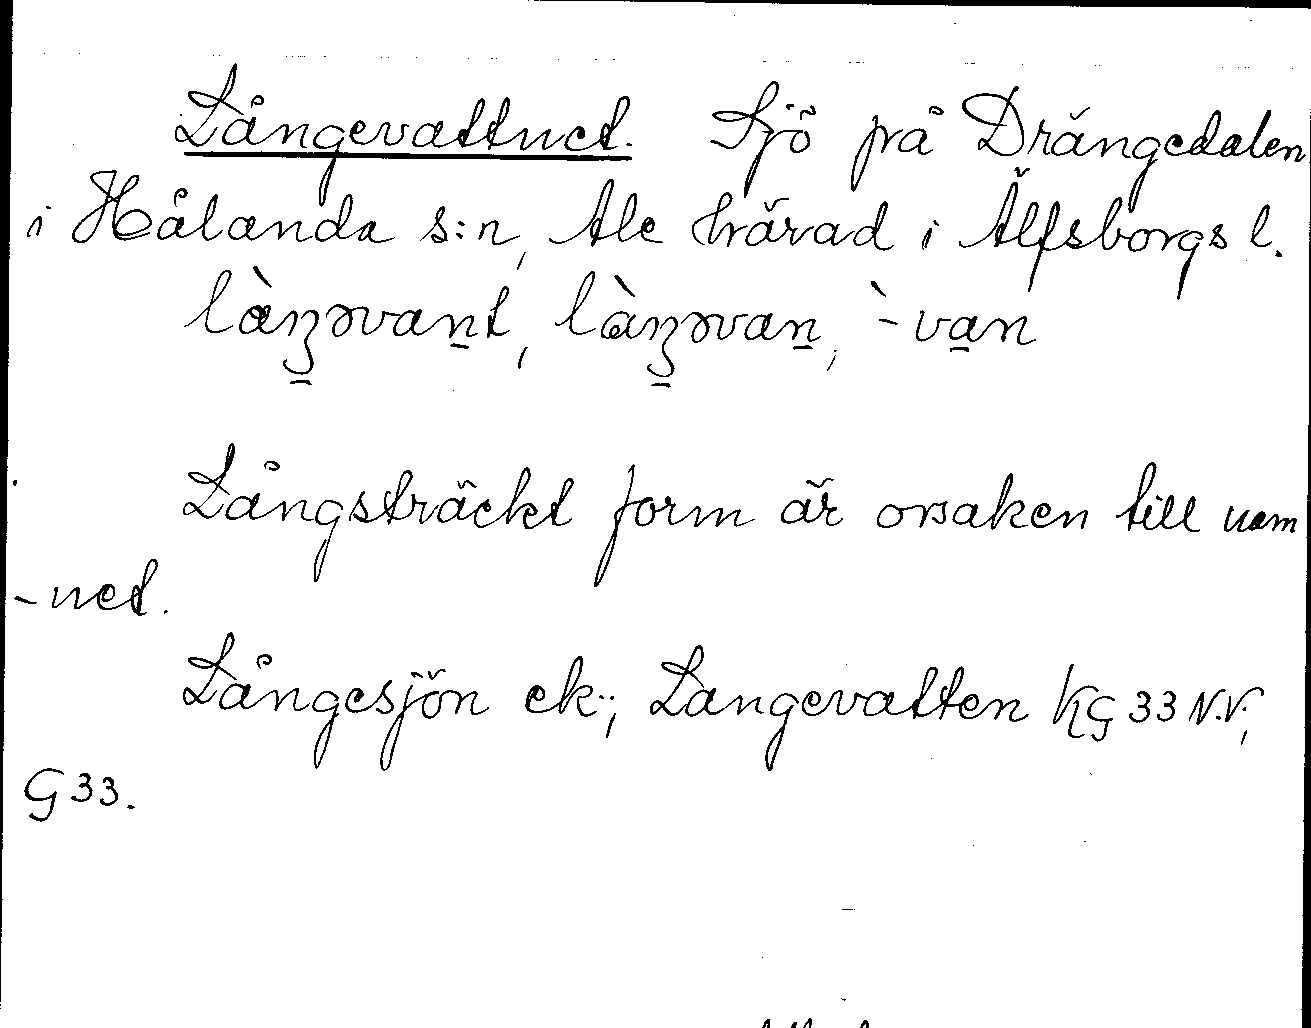 Långevattnet. Sjö på Drängedalen
i Hålanda s:n, Ale härad i Älfsborgs l.
làŋəvant, làŋəvan, `-van
Långsträckt form är orsaken till nam
-net.
Långesjön ek.; Langevatten KG 33 N.V;
G 33.